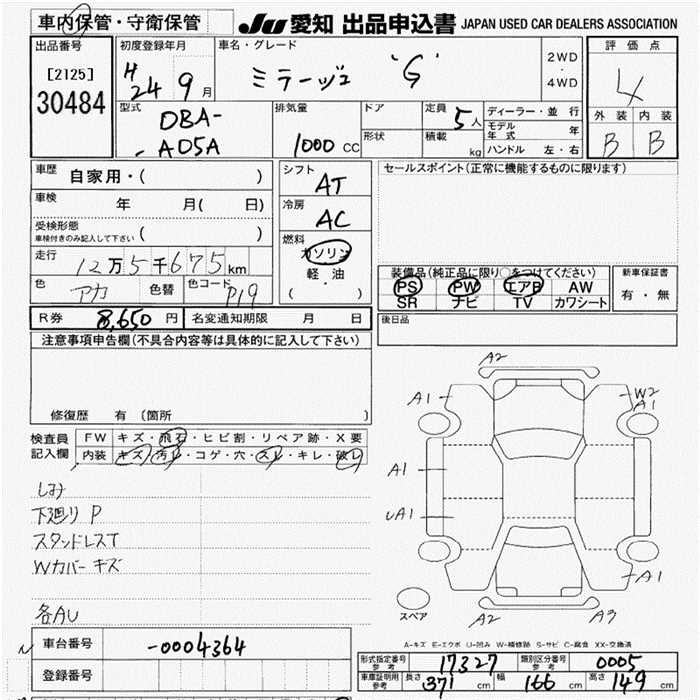 車内保管・守衛保管
JU 愛知 出品申込書 JAPAN USED CAR DEALERS ASSOCIATION
出品番号
[2125]
30484
初度登録年月
H24 9月
車名・グレード
ミラージュ 'G'
2WD
・
4WD
評価点
4
外装 内装
B B
型式
DBA-
-A05A
排気量
1000 CC
ドア
形状
定員 5人
積載 kg
ディーラー・並行
モデル年式 年
ハンドル 左・右
車歴 自家用・( )
車検 年 月( 日)
受検形態
車検付きのみ記入して下さい ( )
走行 12万5千675km
色 アカ 色替 色コード P19
シフト
AT
冷房
AC
燃料
ガソリン
軽・油
( ・ )
セールスポイント(正常に機能するものに限ります)
装備品(純正品に限り○をつけてください)
PS PW エアB AW
SR ナビ TV カワシート
新車保証書
有・無
後日品
R券 8,650円 名変通知期限 月 日
注意事項申告欄(不具合内容等は具体的に記入して下さい)
修復歴 有(箇所 )
検査員
記入欄
FW キズ・飛石・ヒビ割・リペア跡・X要
内装 キズ・汚レ・コゲ・穴・スレ・キレ・破レ
しみ
下廻り P
スタンドレスT
Wカバー キズ
各AU
A2
A1
W2
A1
A1
UA1
A1
スペア
A2
A3
A-キズ E-エクボ U-凹み W-補修跡 S-サビ C-腐食 XX-交換済
車台番号 -0004364
登録番号
形式指定番号
参考 17327
類別区分番号
参考 0005
車庫証明用
参考 長さ 371 cm 幅 166 cm 高さ 149 cm